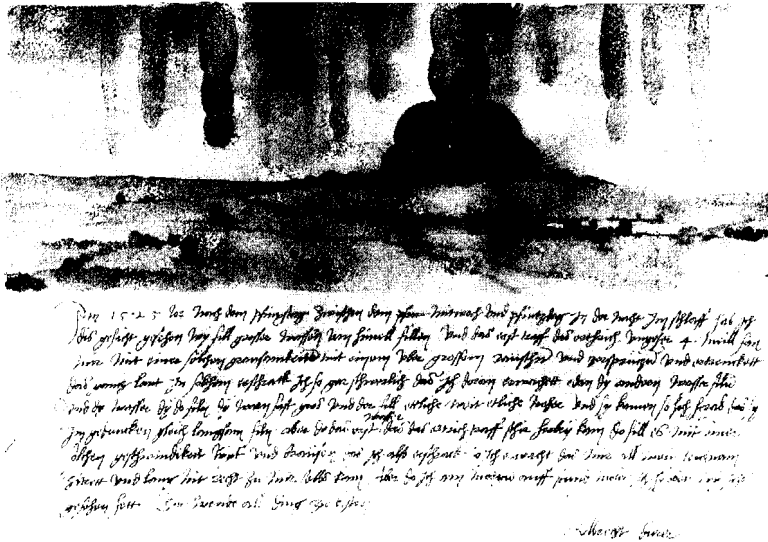 Im 1525 Jor nach dem pfinxstag zwischen dem Mitwoch und pfintzdag in der nacht im schlaff hab ich
dis gesicht gesehen wy fill grosser wassern vom himell fillen Und das erst traff das erthrich ungefer 4 meill fan
mir mit einer solchen grausamkeitt mit einem uber grossem raüschn und zersprützn und ertrenckett
das lant In solchem erschrack ich so gar schwerlich das ich doran erwachett edan dy andern wasser filn
und dy wasser dy do filn dy warn fast gros und der fill etliche weit etliche neher und sy kamen so hoch herab das sy
im gedancken gleich langsam filn aber do das erst wasser das das ertrich traff schir herbey kam do fill es mit einer
solchen geschwindikeit wynt und braüsen das ich also erschrack do ich erwacht das mir all mein leichnam
zitrett und lang nit recht zu mir selbs kam Aber do ich am morgn auff stund molet ich hy oben wy ichs
gesehen hett Got wende alle ding zu besten
Albrecht dürer